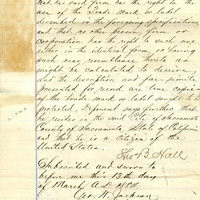 that his said firm has the right to the
use of the Trade Mark or Label
described in the foregoing specification
and that no other person, firm or
corporation has the right to such use
either in the identical form, or having
such near resemblance thereto as
might be calculated to deceive,
that the description and fac-similes
presented for record are true copies
of the trade mark or label sought to be
protected. Deponent says further that
he resides in the said City of Sacramento
County of Sacramento State of California
and that he is a citizen of the
United States.
B. Hall
Subscribed and sworn to
before me this 13th day
of March A.D.
Geo. W. Jackson